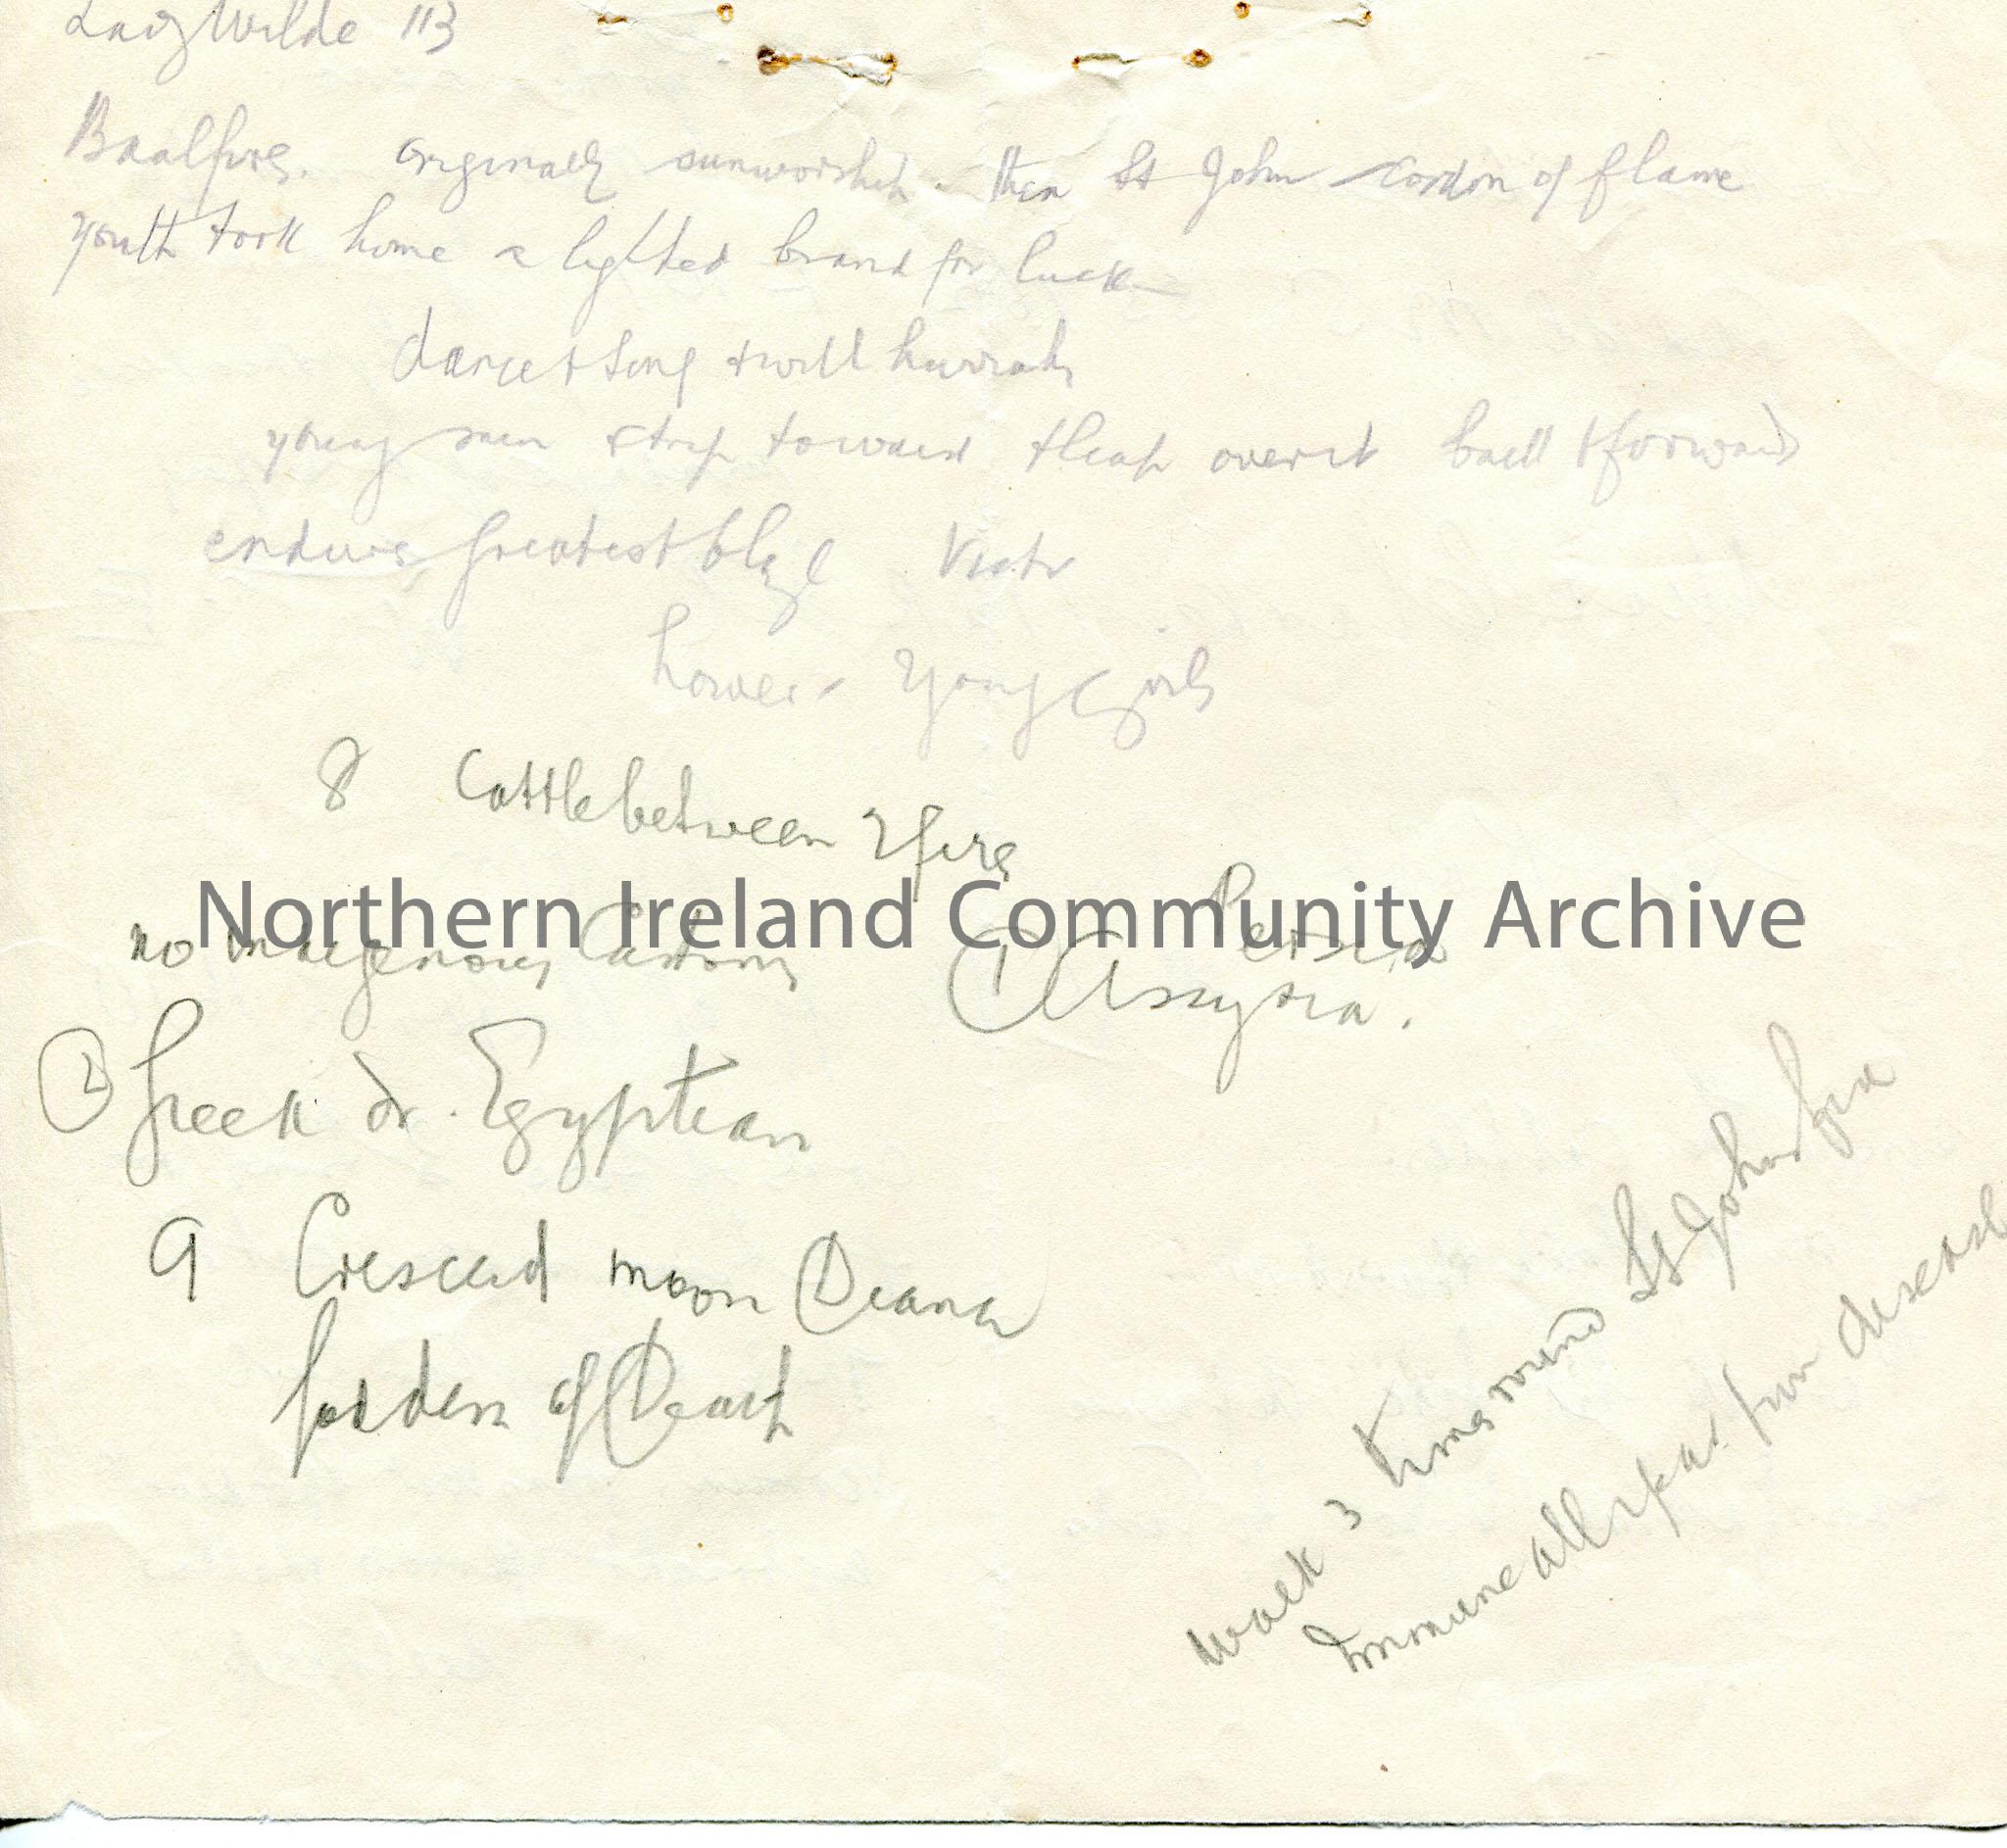 Lady Wilde 113
Baalfires. Originally sunworship. then St John cordon of flame
youth took home a lighted brand for luck
dance + sing + wild hurrahs
young men strip to waist + leap over it back + forward
endures greatest blaze Victor
lower - Young Girls
8 Cattle between 2 fires
Northern Ireland Community Archive
no indigenous Customs Persia
1 Assyria.
2 Greek or Egyptian
9 Crescent moon Diana
Goddess of Death
Walk 3 times round St Johns fire
Immune all year from disease